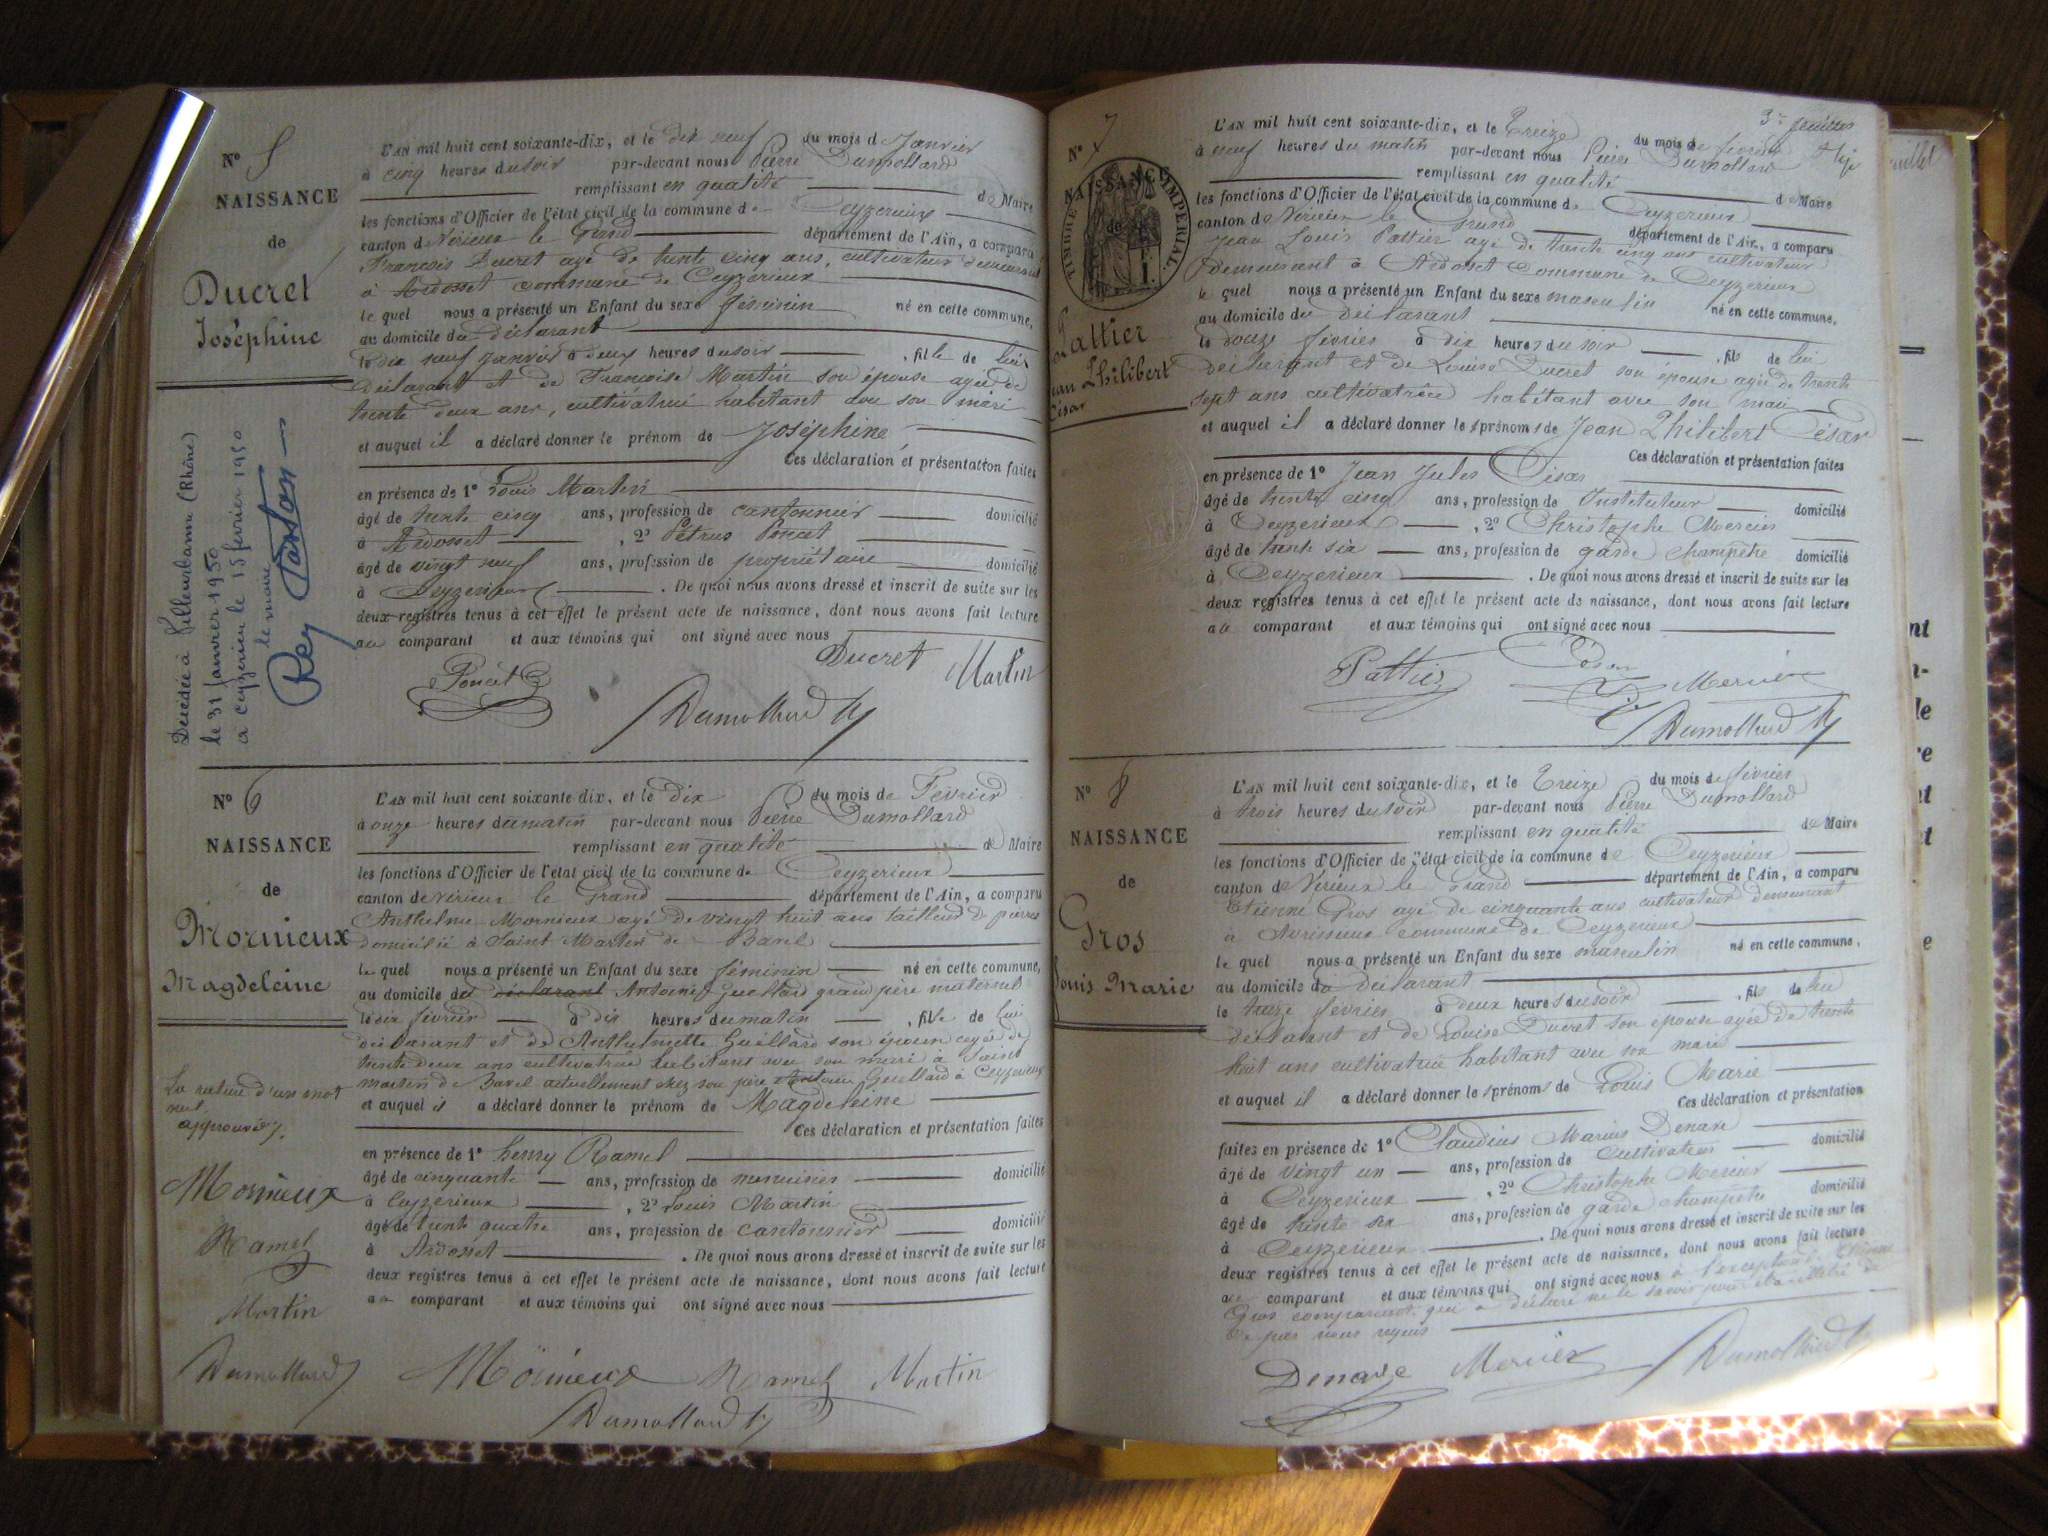 N° 5
NAISSANCE
de
Ducret
Joséphine
Décédée à Villeurbanne (Rhône)
le 31 janvier 1950
à Ceyzérieu le 15 février 1950
le maire
L'AN mil huit cent soixante-dix, et le dix neuf du mois de Janvier
à cinq heures du soir par-devant nous Pierre Dumollard
remplissant en qualité de Maire
les fonctions d'Officier de l'état civil de la commune de Ceyzerieux
canton de Virieux le Grand département de l'Ain, a comparu
François Ducret agé de trente cinq ans, cultivateur demeurant
à Ardosset commune de Ceyzérieux
le quel nous a présenté un Enfant du sexe féminin né en cette commune,
au domicile du déclarant
le dix neuf Janvier à deux heures du soir , fille de lui
déclarant et de Françoise Martin son épouse agée de
trente deux ans, cultivatrice habitant avec son mari
et auquel il a déclaré donner le prénom de Joséphine
Ces déclaration et présentation faites
en présence de 1° Louis Martin
âgé de trente cinq ans, profession de cantonnier domicilié
à Ardosset , 2° Pétrus Poncet
âgé de vingt neuf ans, profession de propriétaire domicilié
à Ceyzerieux . De quoi nous avons dressé et inscrit de suite sur les
deux registres tenus à cet effet le présent acte de naissance, dont nous avons fait lecture
au comparant et aux témoins qui ont signé avec nous
Ducret Martin
Poncet
Dumollard
N° 6
NAISSANCE
de
Mornieux
Magdeleine
La rature d'un mot
nul
approuvé
Mornieux
Ramel
Martin
Dumollard
L'AN mil huit cent soixante-dix, et le dix du mois de Février
à onze heures du matin par-devant nous Pierre Dumollard
remplissant en qualité de Maire
les fonctions d'Officier de l'état civil de la commune de Ceyzerieux
canton de Virieux le Grand département de l'Ain, a comparu
Anthelme Mornieux agé de vingt huit ans tailleur de pierres
domicilié à Saint Martin de Bavel
le quel nous a présenté un Enfant du sexe féminin né en cette commune,
au domicile du déclarant Antoine Guellard grand père maternel
le dix février à dix heures du matin , fille de lui
déclarant et de Anthelmette Guellard son épouse agée de
trente deux ans cultivatrice habitant avec son mari à Saint
martin de Bavel actuellement chez son père Antoine Guellard à Ceyzerieux
et auquel il a déclaré donner le prénom de Magdeleine
Ces déclaration et présentation faites
en présence de 1° henry Ramel
âgé de cinquante ans, profession de menuisier domicilié
à Ceyzerieux , 2° Louis Martin
âgé de trente quatre ans, profession de cantonnier domicilié
à Ardosset . De quoi nous avons dressé et inscrit de suite sur les
deux registres tenus à cet effet le présent acte de naissance, dont nous avons fait lecture
au comparant et aux témoins qui ont signé avec nous
Mornieux Ramel Martin
Dumollard
3e feuillet
N° 7
NAISSANCE
de
TIMBRE IMPERIAL
Pattier
Jean Philibert
César
L'AN mil huit cent soixante-dix, et le Treize du mois de février
à neuf heures du matin par-devant nous Pierre Dumollard
remplissant en qualité de Maire
les fonctions d'Officier de l'état civil de la commune de Ceyzerieux
canton de Virieux le Grand département de l'Ain, a comparu
Jean Louis Pattier agé de trente cinq ans cultivateur
demeurant à Ardosset commune de Ceyzerieux
le quel nous a présenté un Enfant du sexe masculin né en cette commune,
au domicile du déclarant
le douze février à dix heures du soir , fils de lui
déclarant et de Louise Ducret son épouse agée de trente
sept ans cultivatrice habitant avec son mari
et auquel il a déclaré donner le sprénoms de Jean Philibert César
Ces déclaration et présentation faites
en présence de 1° Jean Jules César
âgé de trente cinq ans, profession de Instituteur domicilié
à Ceyzerieux , 2° Christophe Mercier
âgé de trente six ans, profession de garde champêtre domicilié
à Ceyzerieux . De quoi nous avons dressé et inscrit de suite sur les
deux registres tenus à cet effet le présent acte de naissance, dont nous avons fait lecture
au comparant et aux témoins qui ont signé avec nous
Pattier César
Mercier
Dumollard
N° 8
NAISSANCE
de
Gros
Louis Marie
L'AN mil huit cent soixante-dix, et le Treize du mois de février
à trois heures du soir par-devant nous Pierre Dumollard
remplissant en qualité de Maire
les fonctions d'Officier de l'état civil de la commune de Ceyzerieux
canton de Virieux le Grand département de l'Ain, a comparu
Etienne Gros agé de cinquante ans cultivateur demeurant
à Avrissieux commune de Ceyzerieux
le quel nous a présenté un Enfant du sexe masculin né en cette commune,
au domicile du déclarant
le treize février à deux heures du soir , fils de lui
déclarant et de Louise Ducret son épouse agée de trente
huit ans cultivatrice habitant avec son mari
et auquel il a déclaré donner le sprénoms de Louis Marie
Ces déclaration et présentation
faites en présence de 1° Claudius Marius
âgé de vingt un ans, profession de cultivateur domicilié
à Ceyzerieux , 2° Christophe Mercier
âgé de trente six ans, profession de garde champêtre domicilié
à Ceyzerieux . De quoi nous avons dressé et inscrit de suite sur les
deux registres tenus à cet effet le présent acte de naissance, dont nous avons fait lecture
au comparant et aux témoins qui ont signé avec nous à l'exception de Etienne
Gros comparant qui a déclaré ne le savoir
de par nous requis
Mercier Dumollard